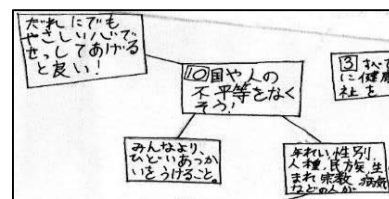 だれにでも
やさしい心で
せっしてあげる
と良い!
10 国や人の
不平等をなく
そう!
3 すべて
に健康
祉を
みんなより、
ひどいあつか
いをうけること。
年れい、性別、
人種、民族、生
まれ、宗教、病気
などの人が